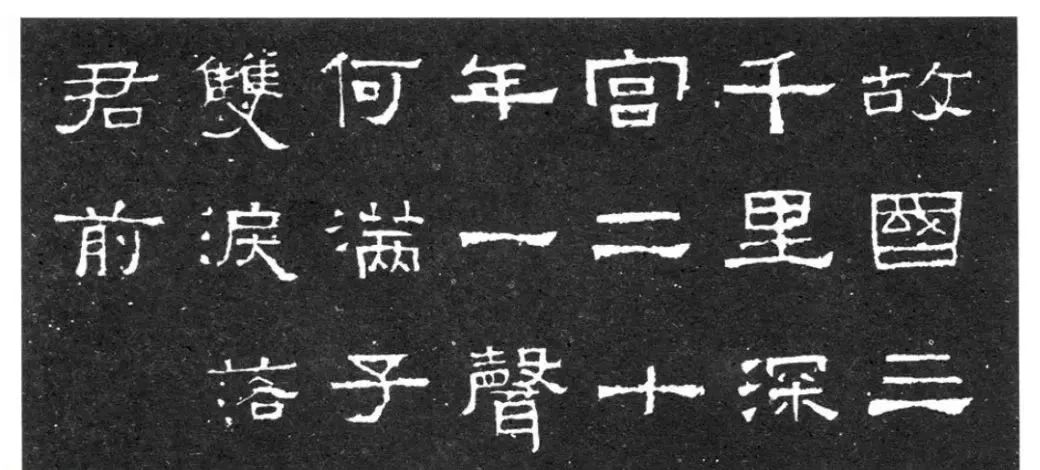 故國三
千里深
宫二十
年一聲
何满子
雙淚落
君前